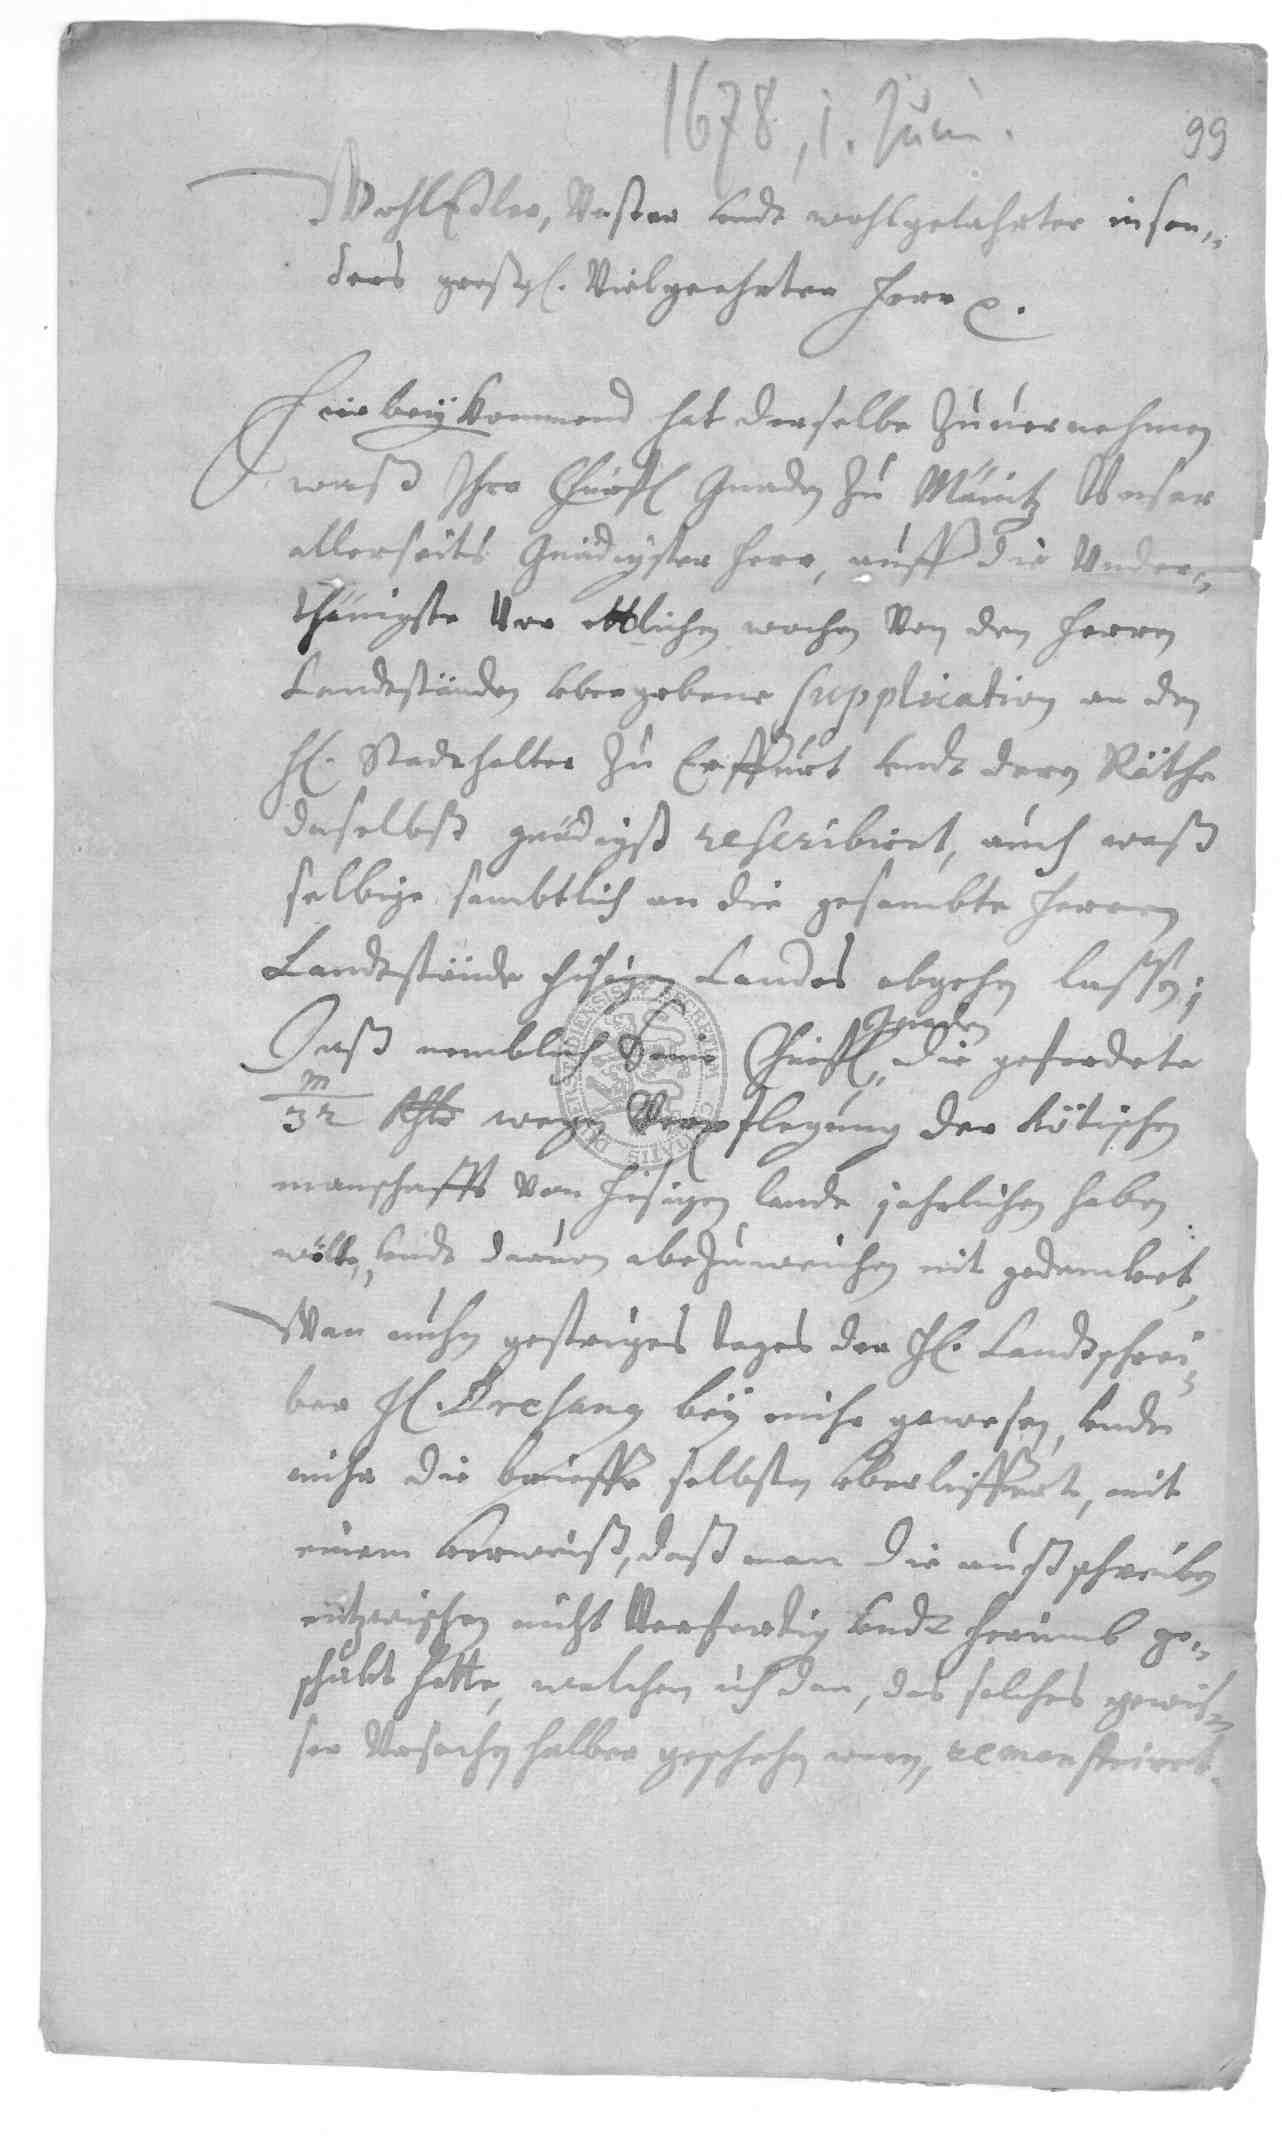 1678, 1. Juni.
99
WohlEdler, Vester undt wohlgelahrter inson„
ders großg. Vielgeehrter Herr p.
Hierbeÿkommend hat derselbe Zuuernehmen
waß Ihre Churfl Gnaden Zu Maintz Unser
allerseits Gnädigster Herr, auff die Under„
thänigste Vor ettlichen wochen Von den Herren
Landtständen übergebene supplication an den
H. Stadthalter Zu Erffurt undt deren Räthe
daselbst gnädigst rescribiret, auch waß
selbige sambtlich an die gesambte Herren
Landtstände hisigen Landes abgehen lassen;
Daß nemblich Seine Churfl. Gnaden die gefordete
m
32 Rthlr wegen Verpflegung der
manschafft Von hisigen lande jahrlichen haben
wolte, undt dauon abzuweichen nit gedencket,
Wan nuhn gestriges tages der H. Landtschrei
ber H. beÿ mihr gewesen, undt
mihr die brieffe selbsten überlieffert, mit
einem verweiß, daß man die außschreiben
intzwischen nicht Verfertig undt herumb ge„
schickt hette, welchem ich dan, das solches gewis„
ser Ursachen halber geschehen were, remonstriret.